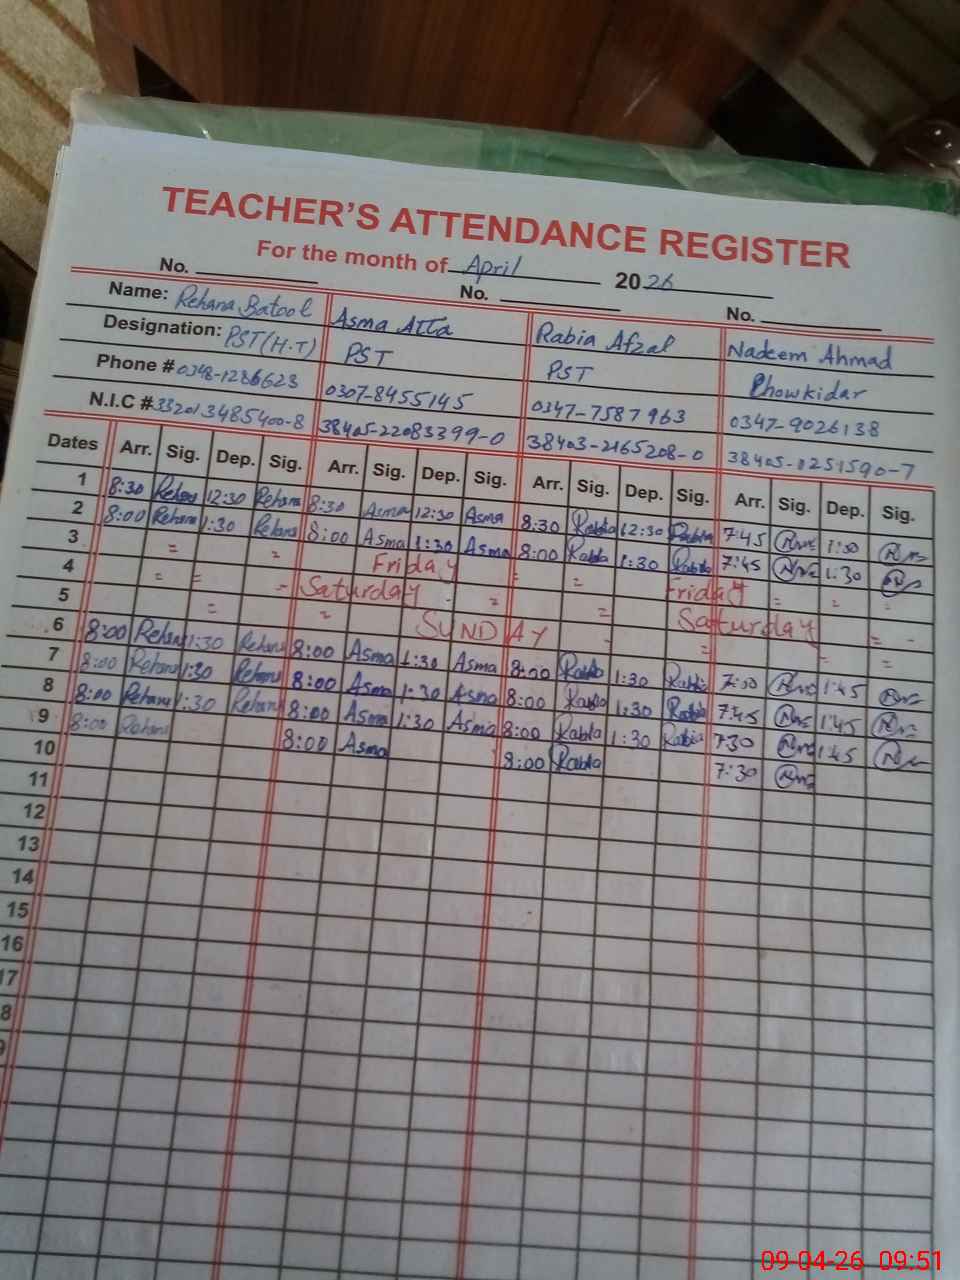 TEACHER'S ATTENDANCE REGISTER
For the month of April 2026
No. No. No.
Name: Rehana Batool Asma Atta Rabia Afzal Nadeem Ahmad
Designation: PST(H.T) PST PST Chowkidar
Phone # 0348-1286623 0307-8455145 0347-7587963 0347-9026138
N.I.C # 38405-22083399-0 38403-2165208-0 38405-0251590-7
Dates Arr. Sig. Dep. Sig. Arr. Sig. Dep. Sig. Arr. Sig. Dep. Sig. Arr. Sig. Dep. Sig.
1 8:30 Rehana 12:30 Rehana 8:30 Asma 12:30 Asma 8:30 Rabia 12:30 Rabia 7:45
2 8:00 Rehana 1:30 Rehana 8:00 Asma 1:30 Asma 8:00 Rabia 1:30 Rabia 7:45 1:30
3 = = Friday = = Friday = = =
4 = = = Saturday - = = Saturday = -
5 = = SUNDAY - = = =
6 8:00 Rehana 1:30 Rehana 8:00 Asma 1:30 Asma 8:00 Rabia 1:30 Rabia 1:45
7 8:00 Rehana 1:30 Rehana 8:00 Asma 1:30 Asma 8:00 Rabia 1:30 Rabia 7:45 1:45
8 8:00 Rehana 1:30 Rehana 8:00 Asma 1:30 Asma 8:00 Rabia 1:30 Rabia 7:30 1:45
9 8:00 Rehana 8:00 Asma 8:00 Rabia 7:30
10
11
12
13
14
15
16
17
8
9
09-04-26 09:51